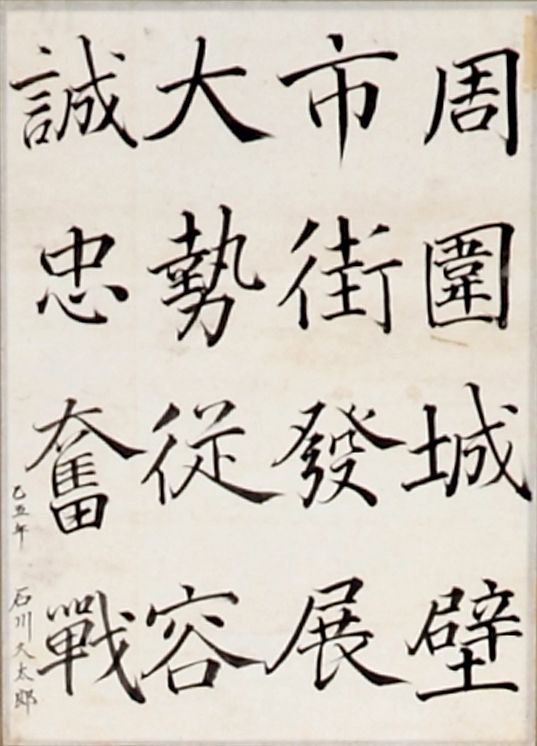 周圍城壁
市街發展
大勢從容
誠忠奮戰
乙丑年 石川久太郎